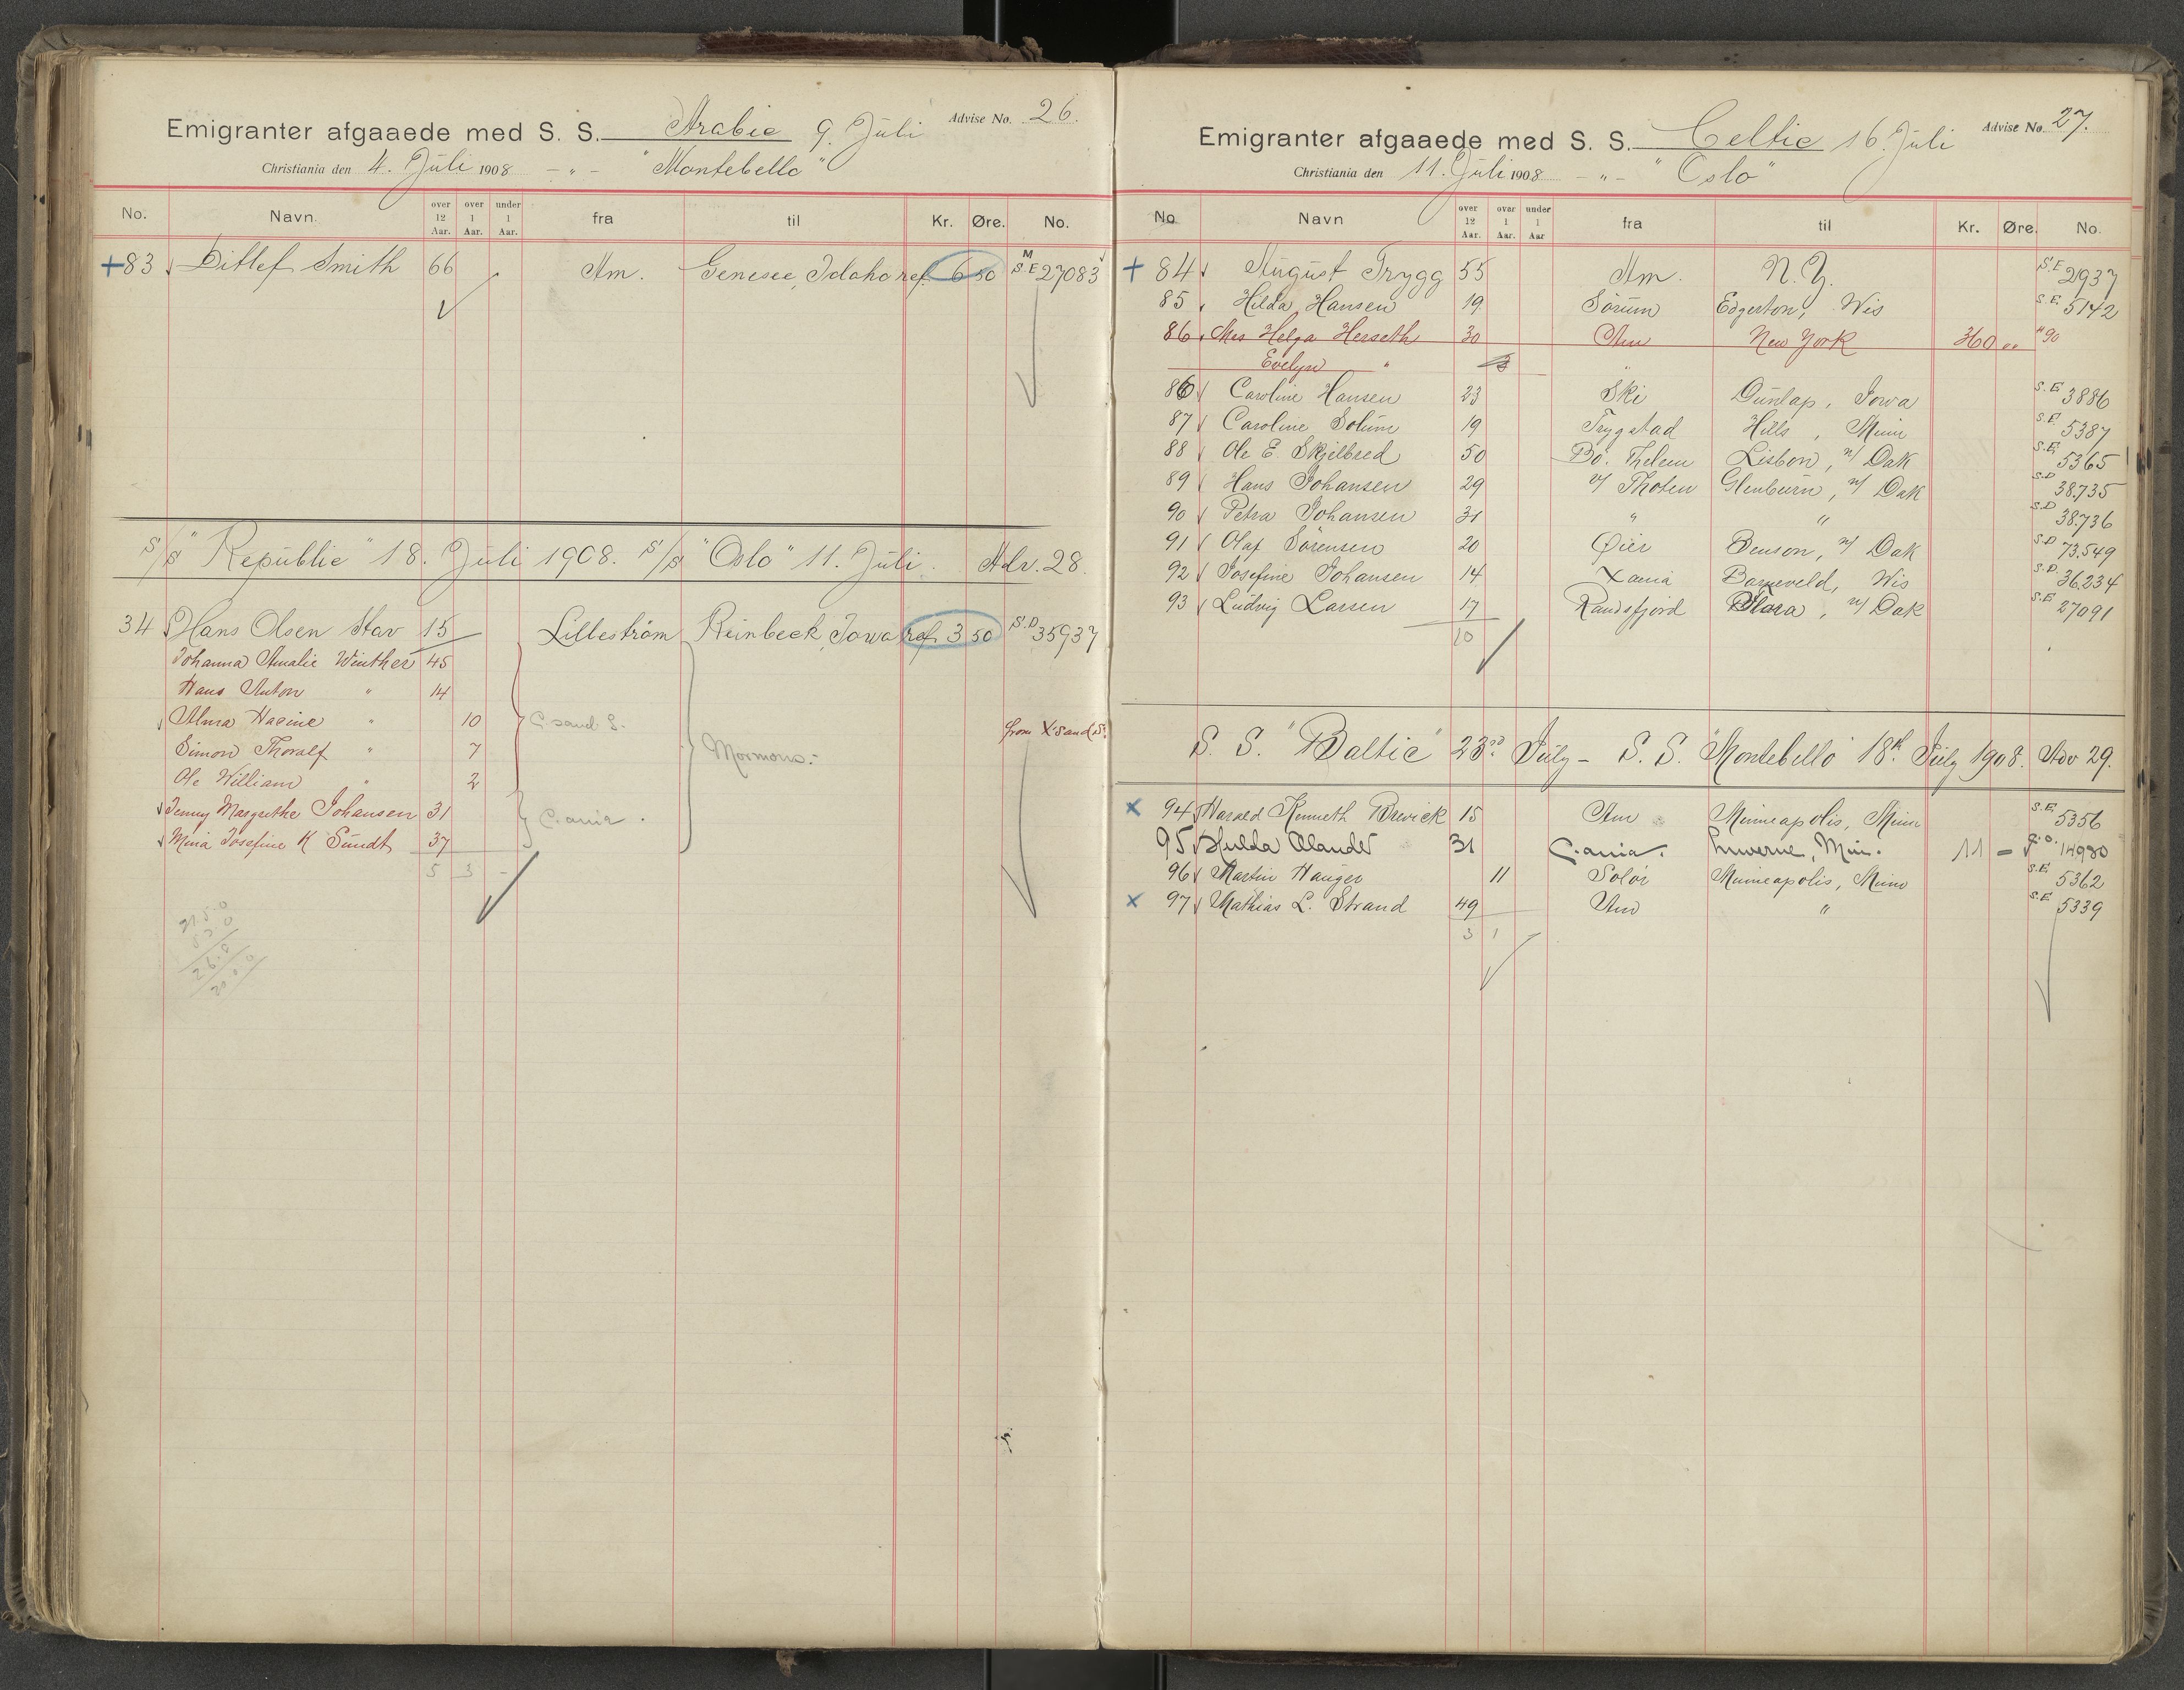 Emigranter afgaaede med S. S. Arabic 9. Juli Advise No. 26.
Christiania den 4. Juli 1908 - " - "Montebello"
No. Navn. over 12 Aar. over 1 Aar. under 1 Aar. fra til Kr. Øre. No.
+83 Ditlef Smith 66 Am. Genesee, Idaho ref. 6 50 M S.E 27083
S/S "Republic" 18. Juli 1908. S/S "Oslo" 11. Juli. Adv. 28.
34 Hans Olsen Stav 15 Lilleström Reinbeck, Iowa ref. 3 50 S.D 35937
Johanna Amalie Winther 45
Hans Anton " 14
Alma Hacine " 10 C.sand S. from X'sand S.
Simon Thoralf " 7 Mormons.-
Ole William " 2
Jenny Margrethe Johansen 31 C.ania.
Mina Josefine K Sundt 37
5 3 -
Emigranter afgaaede med S. S. Celtic 16. Juli Advise No. 27.
Christiania den 11. Juli 1908 - " - "Oslo"
No Navn over 12 Aar. over 1 Aar. under 1 Aar fra til Kr. Øre. No.
+ 84 August Trygg 55 Am. N.Y. S.E 2937
85 Hilda Hansen 19 Sörum Edgerton, Wis S.E. 5142
86 Mrs Helga Herseth 30 Am New York 360 " 90
Evelyn "
86 Caroline Hansen 23 Ski Dunlap, Iowa S.E. 3886
87 Caroline Solum 19 Trygstad Hills, Minn S.E. 5387
88 Ole E. Skjelbred 50 Bö. Thelem Lisbon, n/ Dak S.E. 5365
89 Hans Johansen 29 v/ Thoten Glenburn, n/ Dak S.D 38.735
90 Petra Johansen 31 " " S.D 38.736
91 Olaf Sörensen 20 Öier Benson, n/ Dak S.D 73.549
92 Josefine Johansen 14 Xania Barneveld, Wis S.D. 36.234
93 Ludvig Larsen 17 Randsfjord Flora, n/ Dak S.E 27091
10
S. S. "Baltic" 23rd July - S. S. "Montebello" 18th July 1908. Adv 29.
x 94 Harald Kenneth Brevick 15 Am Minneapolis, Minn S.E. 5356
95 Hulda Olander 31 C.ania. Luverne, Min. 11 - 14980
96 Martin Hauger 11 Solör Minneapolis, Minn S.E. 5362
x 97 Mathias L. Strand 49 Am " S.E. 5339
3 1 -